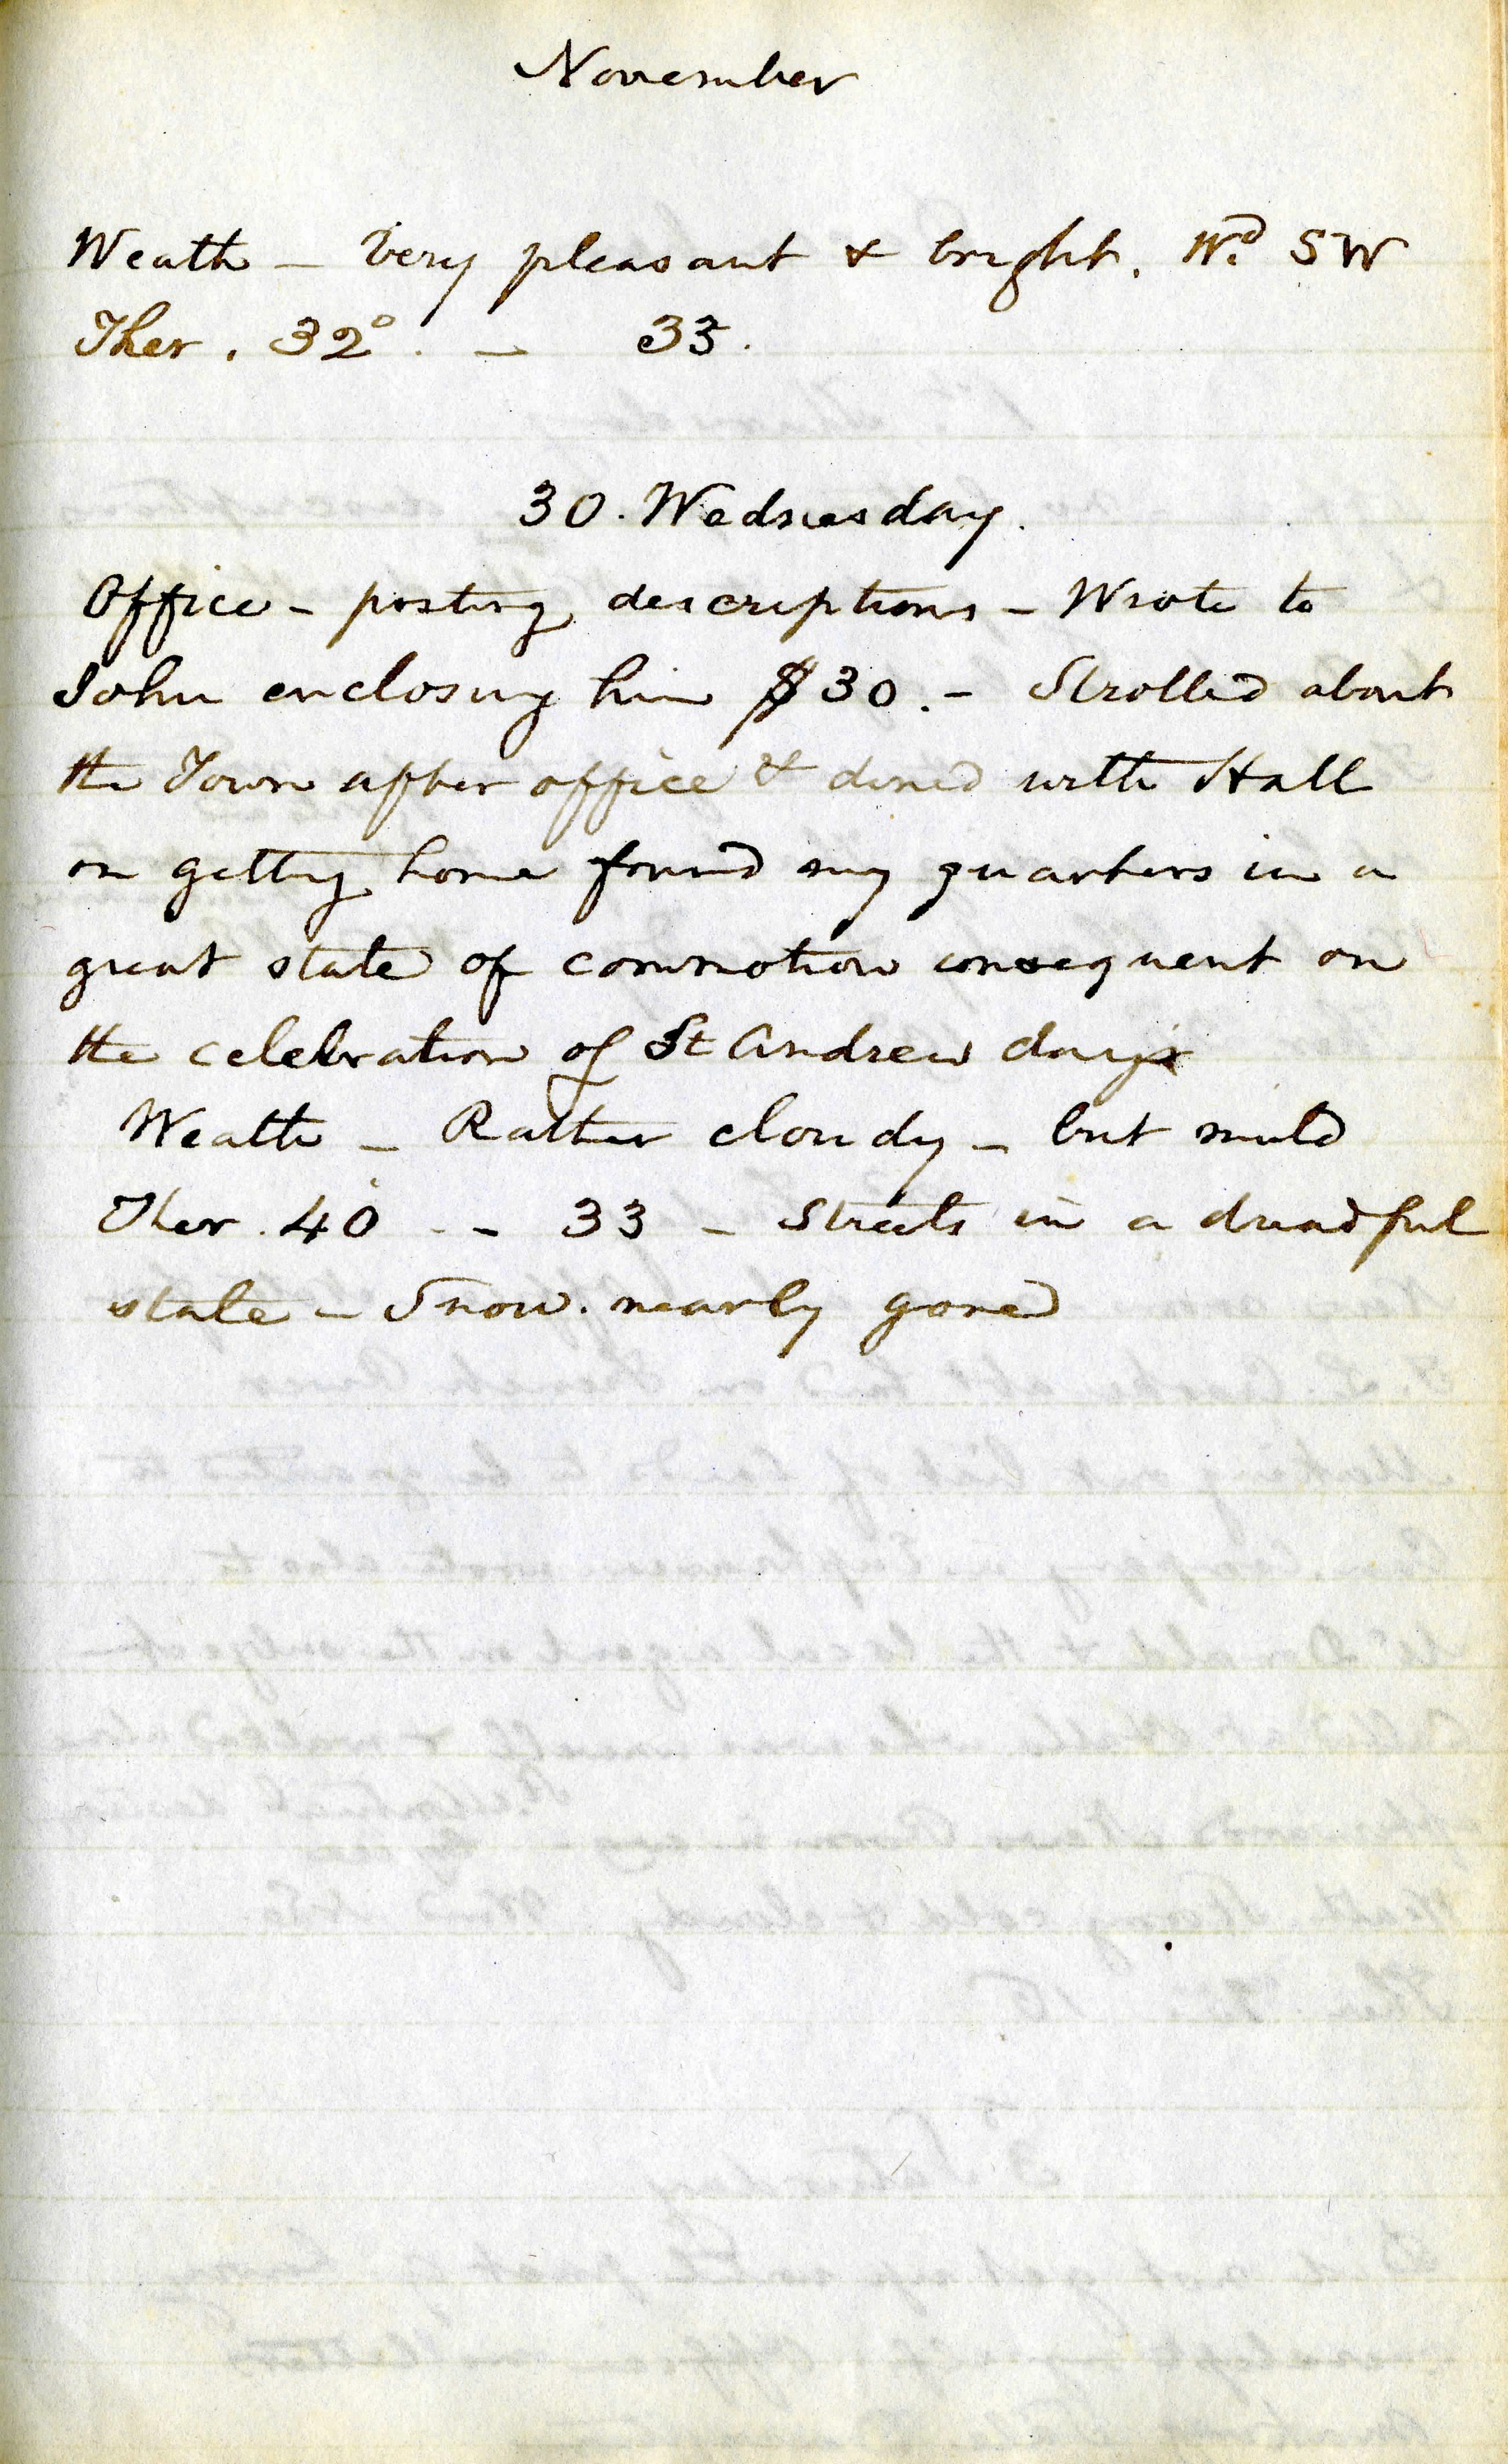 November
Weath – Very pleasant & bright. Wd SW
Ther. 32° – 33.
30. Wednesday.
Office – posting descriptions – Wrote to
John enclosing him $30. – Strolled about
the Town after office & dined with Hall
on getting home found my quarters in a
great state of commotion consequent on
the celebration of St Andrew day
Weath – Rather cloudy – but mild
Ther. 40 – – 33 – Streets in a dreadful
state – Snow. nearly gone